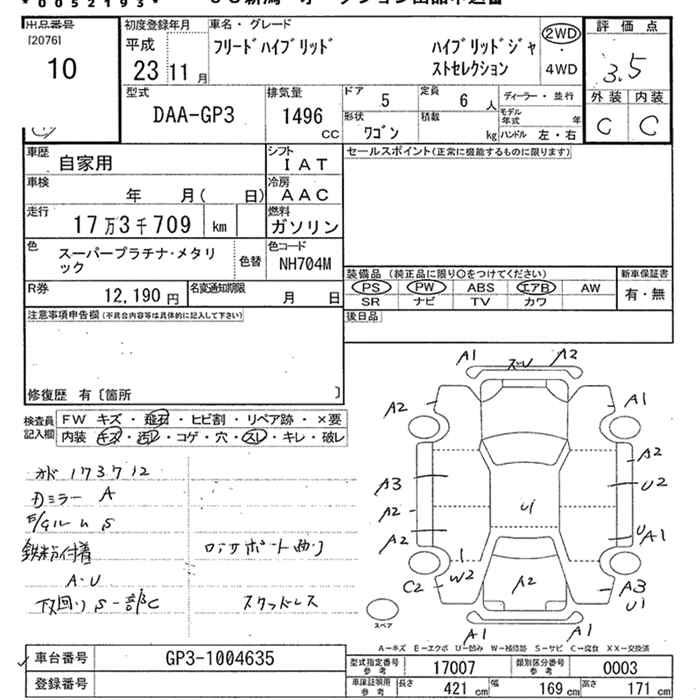 *0052193*
出品番号
[2076]
10
初度登録年月
平成
23 11月
車名・グレード
フリードハイブリッド
ハイブリッドジャストセレクション
2WD
・
4WD
評価点
3.5
外装 内装
C C
型式
DAA-GP3
排気量
1496
CC
ドア
5
定員
6 人
ディーラー・並行
モデル年式 年
形状
ワゴン
積載
kg
ハンドル 左・右
車歴
自家用
シフト
IAT
セールスポイント(正常に機能するものに限ります)
車検
年 月( 日)
冷房
AAC
走行
17万3千709 km
燃料
ガソリン
色
スーパープラチナ・メタリック
色替
色コード
NH704M
装備品 (純正品に限り○をつけてください)
PS PW ABS エアB AW
SR ナビ TV カワ
新車保証書
有・無
R券
12,190 円
名変通知期限
月 日
後日品
注意事項申告欄(不具合内容等は具体的に記入して下さい)
修復歴 有〔箇所 〕
検査員記入欄
FW キズ・飛石・ヒビ割・リペア跡・×要
内装 キズ・汚レ・コゲ・穴・スレ・キレ・破レ
オド 173712
Dミラー A
ロアサポート曲り
A・U
下回り S 一部C
スタッドレス
A1
A2
A2
A1
A3
A2
A2
A2
U2
U
A1
U1
W2
C2
A2
A3
U1
A1
A1
スペア
A－キズ E－エクボ U－凹み W－補修跡 S－サビ C－腐食 XX－交換済
車台番号
GP3-1004635
登録番号
型式指定番号
参考
17007
類別区分番号
参考
0003
車庫証明用
参考
長さ 421 cm
幅 169 cm
高さ 171 cm